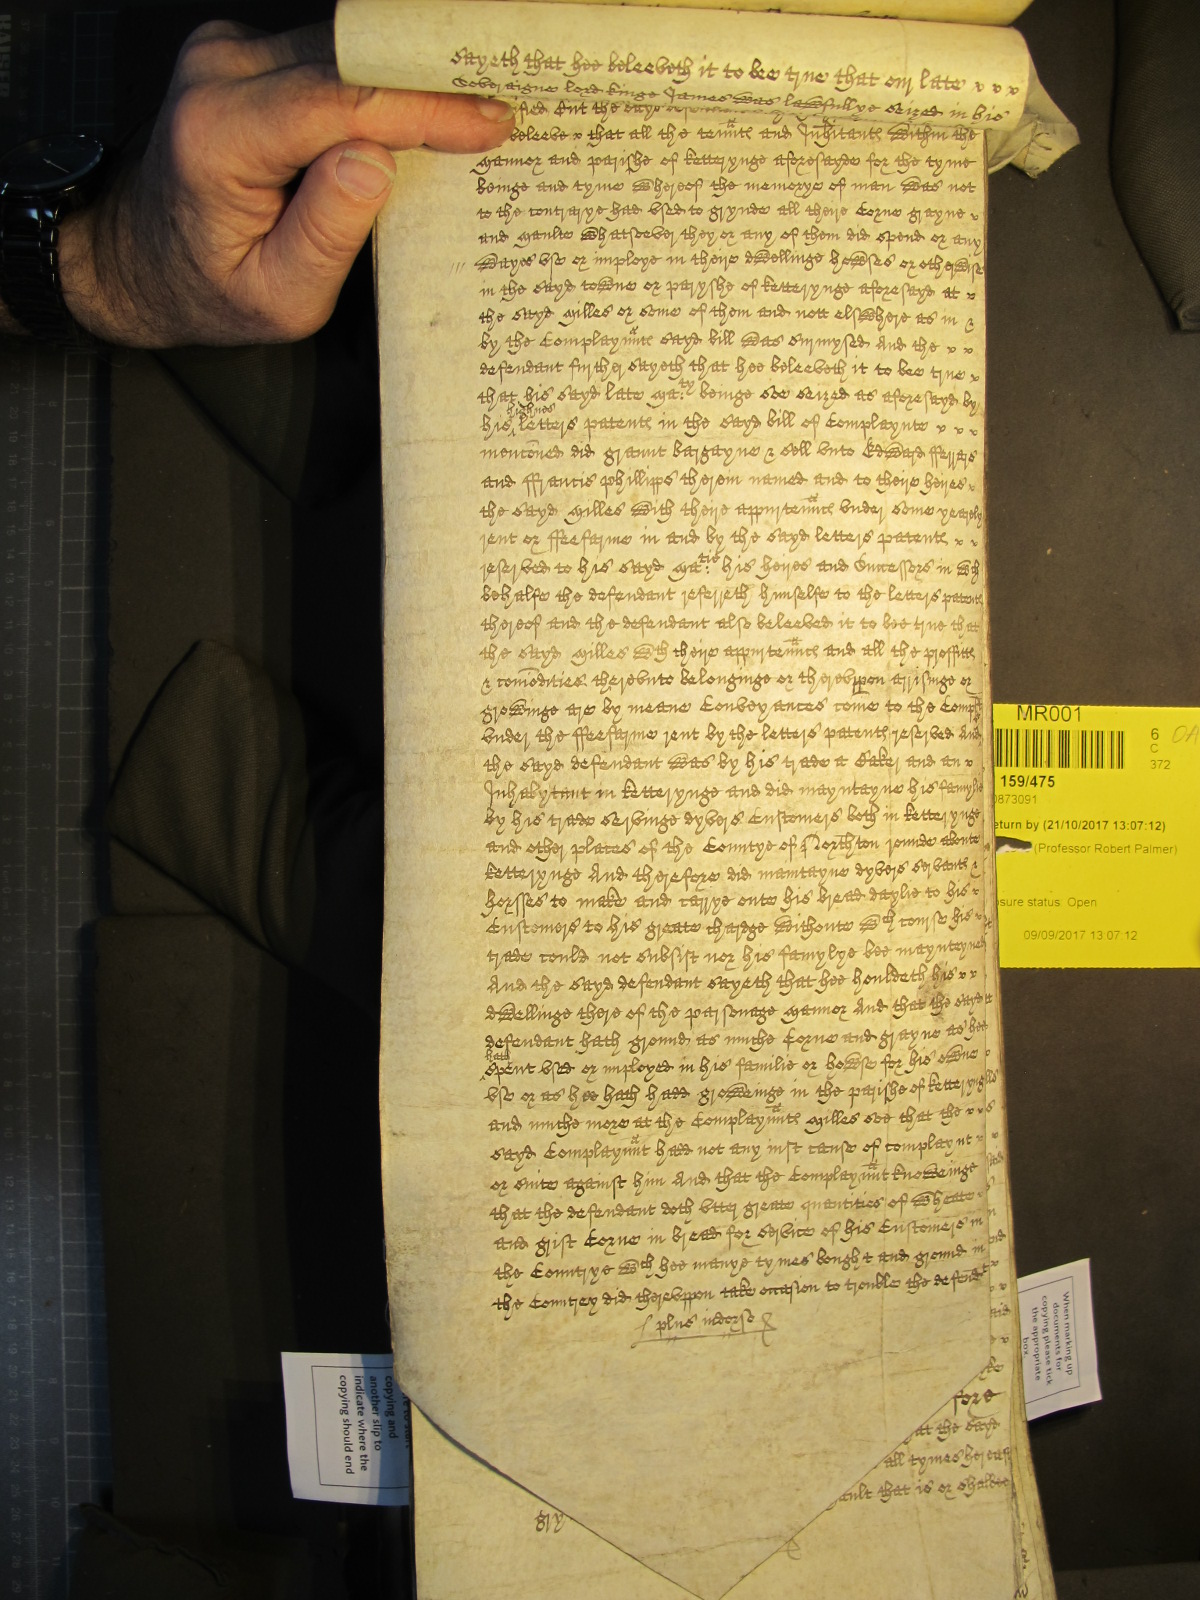 sayeth that hee beleeveth it to bee true that our late x x x
Soveraigne lord Kinge James was lawfullye seized in his
ified But the sayd
beleeve x that all the ten̄nts and Inh̄itants within the
mannor and parishe of Ketterynge aforesayde for the tyme
beinge and tyme Whereof the memorye of man Was not
to the contrarye had vsed to grynde all theire Corne grayne x
and maulte Whatsoever they or any of them did spend or any
Wayes vse or imploye in theire dwellinge howses or otherwise
in the sayd towne or paryshe of Ketterynge aforesayd at x
the sayd milles or some of them and nott elswhere as in &
by the Complayn̄nts sayd bill Was surmysed And the x x
defendant further sayeth that hee beleeveth it to bee true x
that his sayd late Ma:ty beinge soe seized as aforesayd by
his highnes letters patents in the sayd bill of Complaynte x x x
menc̄oned did graunt bargayne & sell vnto Edward fferrers
and ffrancis phillipps therein named and to theire heires x
the sayd milles with theire appurten̄nts vnder some yearely
rent or ffeefarme in and by the sayd letters patents x x
reserved to his sayd Ma:tie his heires and Successors in Wch
behalfe the defendant referreth himselfe to the letters patents
thereof and the defendant also beleeved it to bee true that
the sayd milles Wth theire appurten̄nts and all the proffitts
& com̄odities therevnto belonginge or therevppon arrisinge or
growinge are by meane Conveyances come to the Compl
vnder the ffeefarme rent by the letters patents reserved And
the sayd defendant Was by his trade a Baker and an x
Inhabytant in Ketterynge and did mayntayne his famylie
by his trade servinge dyvers Customers both in Ketterynge
and other places of the Countye of Northton rounde aboute
Ketterynge And therefore did maintayne dyvers servants &
horsses to make and carrye onto his bread daylie to his x
Customers to his greate chardge Withoute Wch course his x
trade could not subsist nor his famylye bee maynteyned
And the sayd defendant sayeth that hee houldeth his x x
dwellinge there of the parsonage mannor And that the sayd
defendant hath ground as muche Corne and grayne as hee
hath spent vsed or imployed in his familie or howse for his owne
vse or as hee hath hadd groweinge in the parishe of Ketterynge
and muche more at the Complayn̄nts milles soe that the x x
sayd Complayn̄nt hadd not any iust cause of complaynt x
or suite against him And that the Complayn̄nt knoweinge
that the defendant doth vtter greate quantities of Wheate x
and grist Corne in bread for service of his Customers in
the Countrye Wch hee manye tymes bought and ground in
the Countrey did therevppon take occasion to trouble the defendt
plus indorse
fore
at the sayd
all tymes hereaf
ault that is or shalbee
gry
MR001
6
C
372
159/475
0873091
eturn by (21/10/2017 13:07:12)
(Professor Robert Palmer)
osure status Open
09/09/2017 13:07:12
When marking up
documents for
copying please tick
the appropriate
box.
copying and
another slip to
indicate where the
copying should end